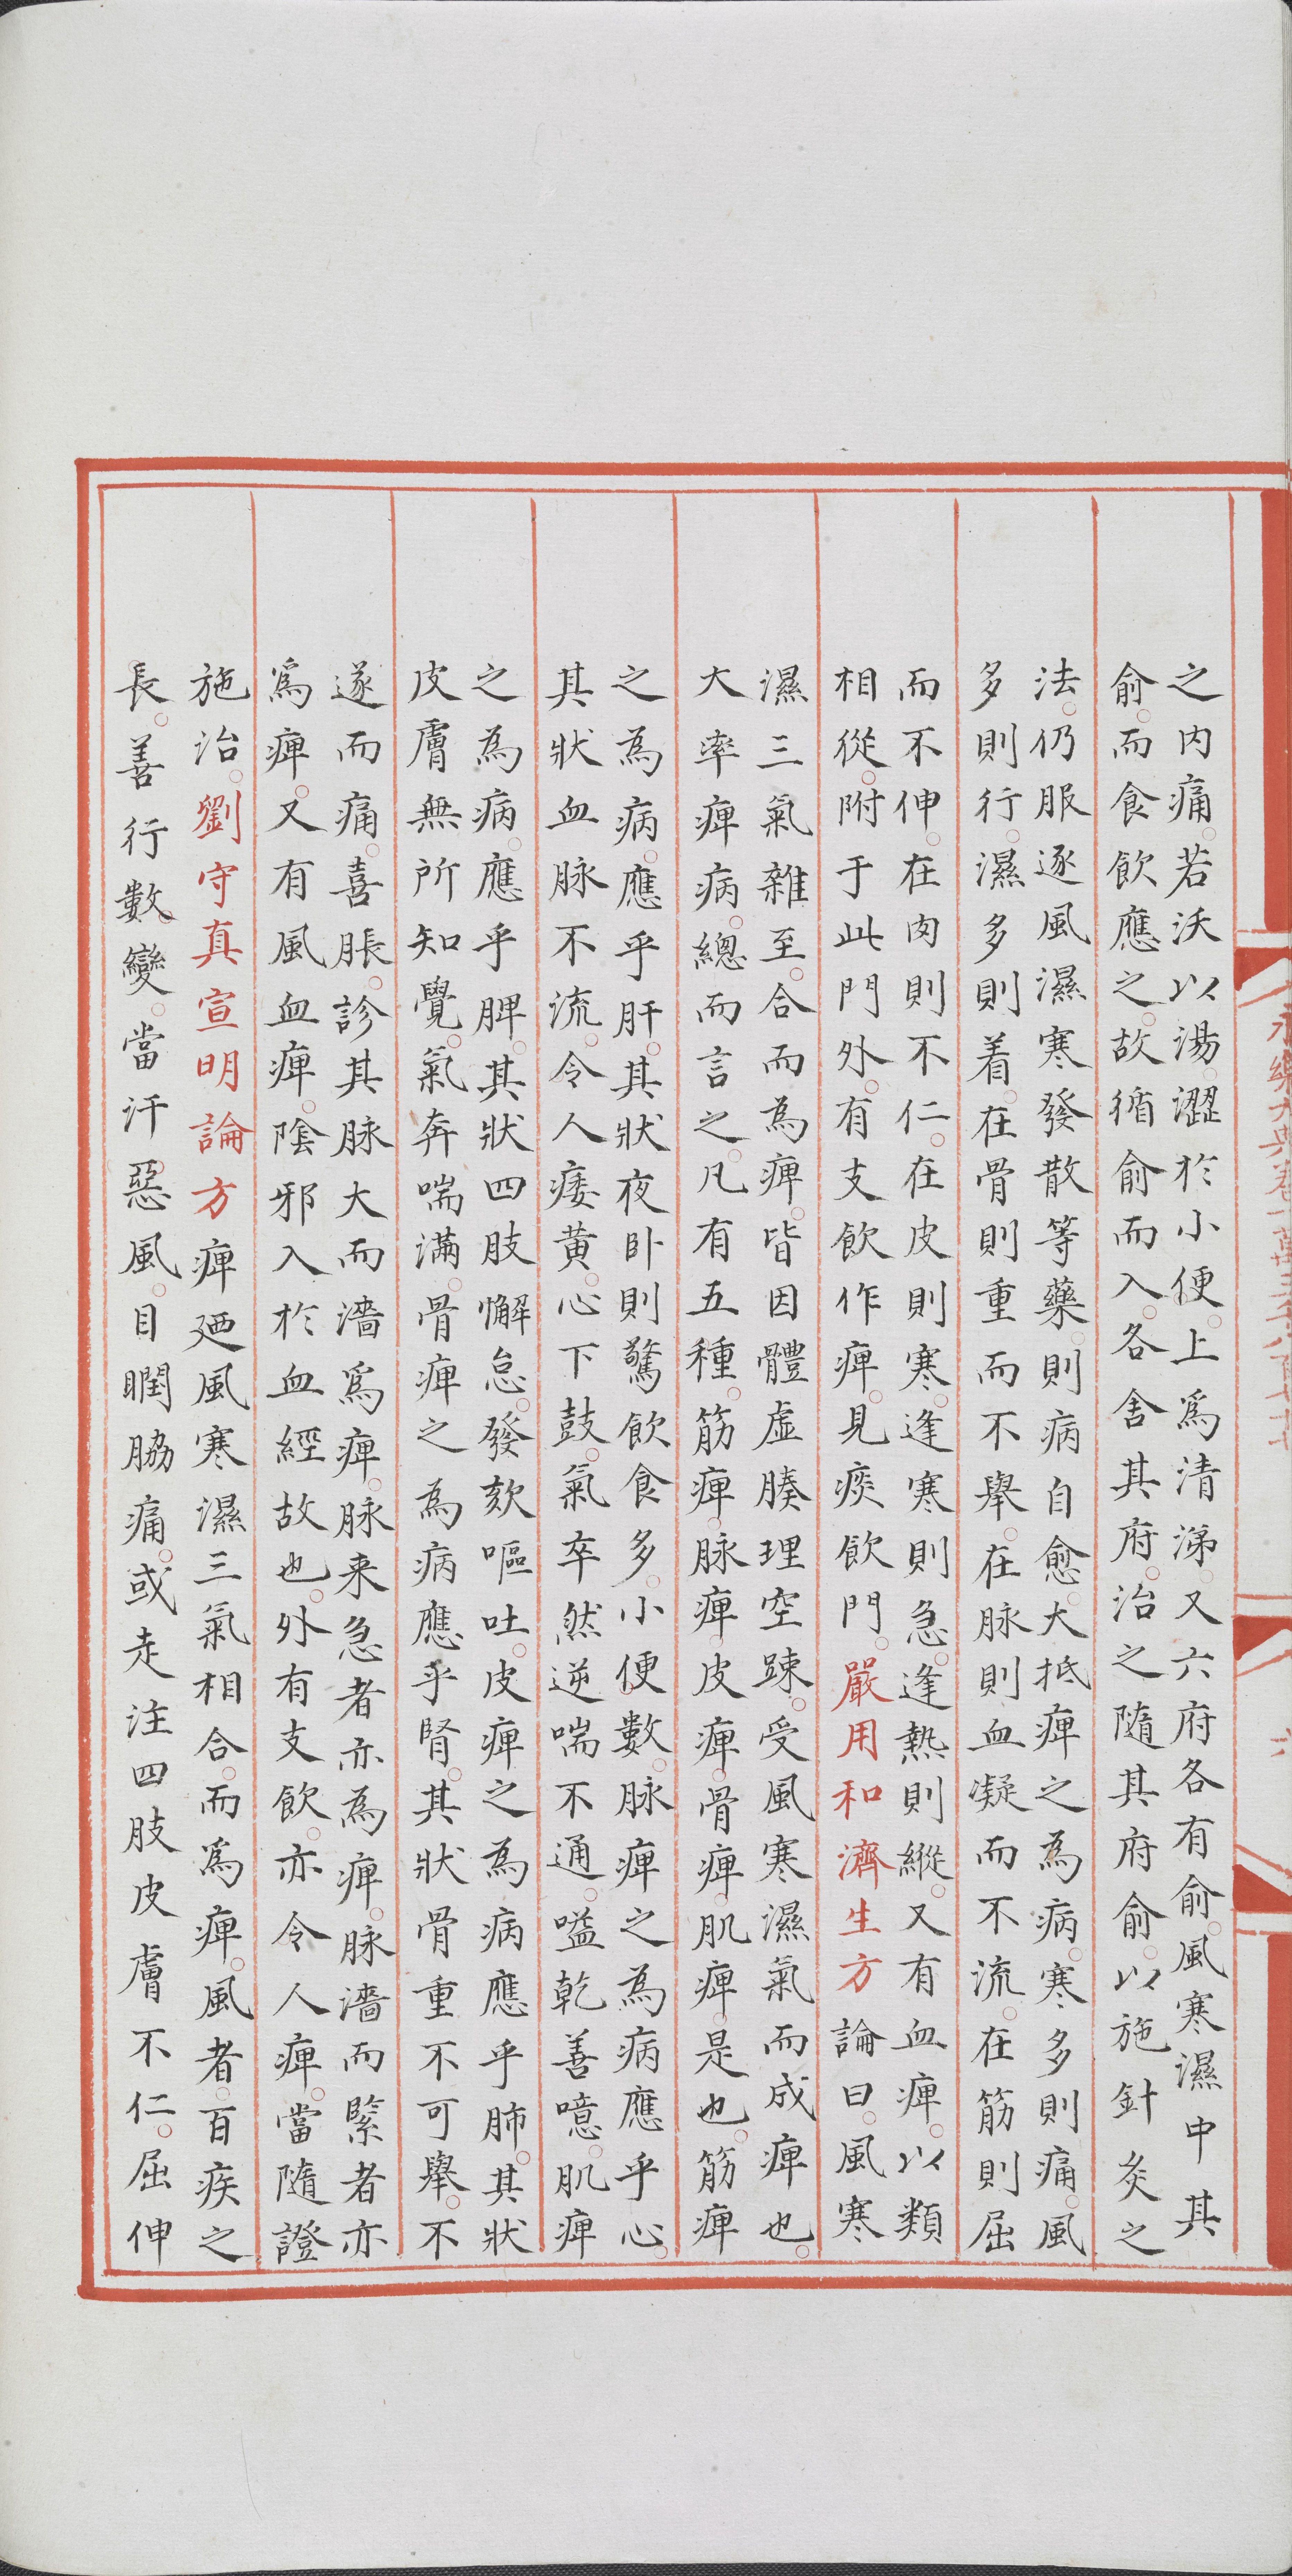 之内痛。若沃以湯。澀於小便。上爲清涕。又六府各有俞。風寒濕中其
俞。而食飲應之。故循俞而入。各舍其府。治之隨其府俞。以施針灸之
法。仍服逐風濕寒發散等藥。則病自愈。大抵痺之為病。寒多則痛。風
多則行。濕多則着。在骨則重而不舉。在脉則血凝而不流。在筋則屈
而不伸。在肉則不仁。在皮則寒。逢寒則急。逢熱則縱。又有血痺。以類
相從。附于此門外。有支飲作痺。見痰飲門。嚴用和濟生方論曰。風寒
濕三氣雜至。合而為痺。皆因體虛腠理空踈。受風寒濕氣而成痺也。
大率痺病。總而言之。凡有五種。筋痺。脉痺。皮痺。骨痺。肌痺。是也。筋痺
之為病。應乎肝。其狀夜卧則驚。飲食多。小便數。脉痺之為病應乎心。
其狀血脉不流。令人痿黄。心下鼓。氣卒然逆喘不通。嗌乾善噫。肌痺
之為病。應乎脾。其狀四肢懈怠。發欬嘔吐。皮痺之為病應乎肺。其狀
皮膚無所知覺。氣奔喘滿。骨痺之為病應乎腎。其狀骨重不可舉。不
遂而痛。喜脹。診其脉大而濇爲痺。脉来急者亦為痺。脉濇而緊者亦
爲痺。又有風血痺。隂邪入於血經故也。外有支飲。亦令人痺。當隨證
施治。劉守真宣明論方痺廼風寒濕三氣相合。而爲痺。風者。百疾之
長。善行數變。當汗惡風。目瞤脇痛。或走注四肢皮膚不仁。屈伸